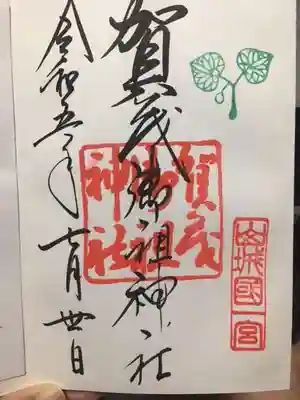 山城國一宮
賀茂御祖神社
賀茂
御祖
神社
令和五年 月 日